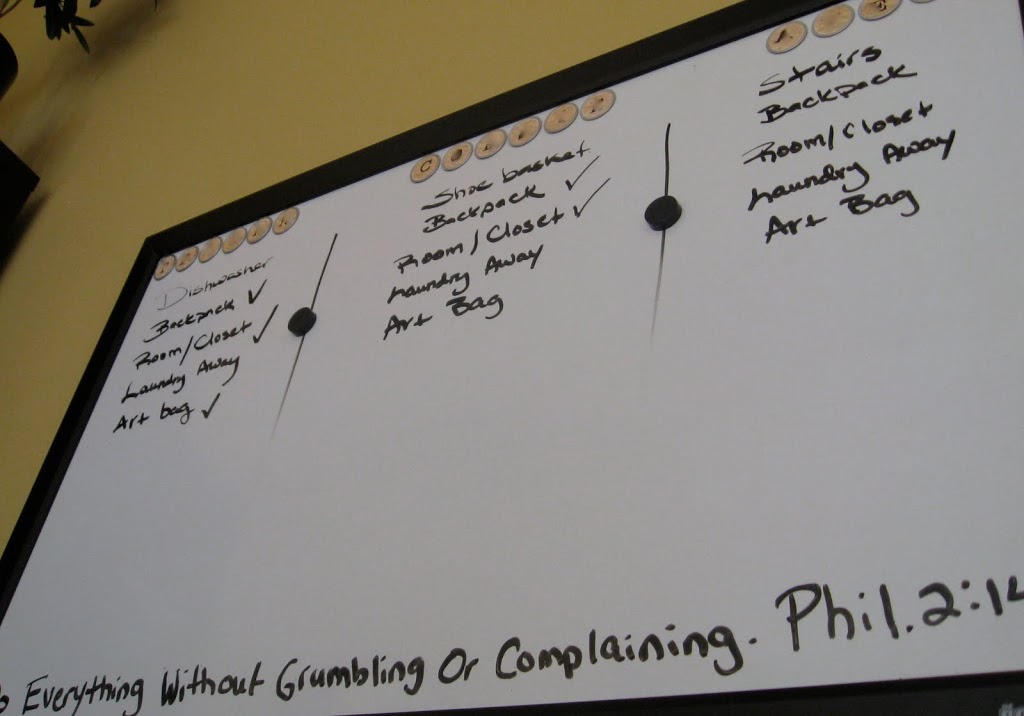 Dishwasher
Backpack ✓
Room/Closet ✓
Laundry Away
Art bag ✓
Shoe basket
Backpack ✓
Room/Closet ✓
Laundry Away
Art Bag
Stairs
Backpack
Room/Closet
Laundry Away
Art Bag
Everything Without Grumbling Or Complaining. Phil. 2:14